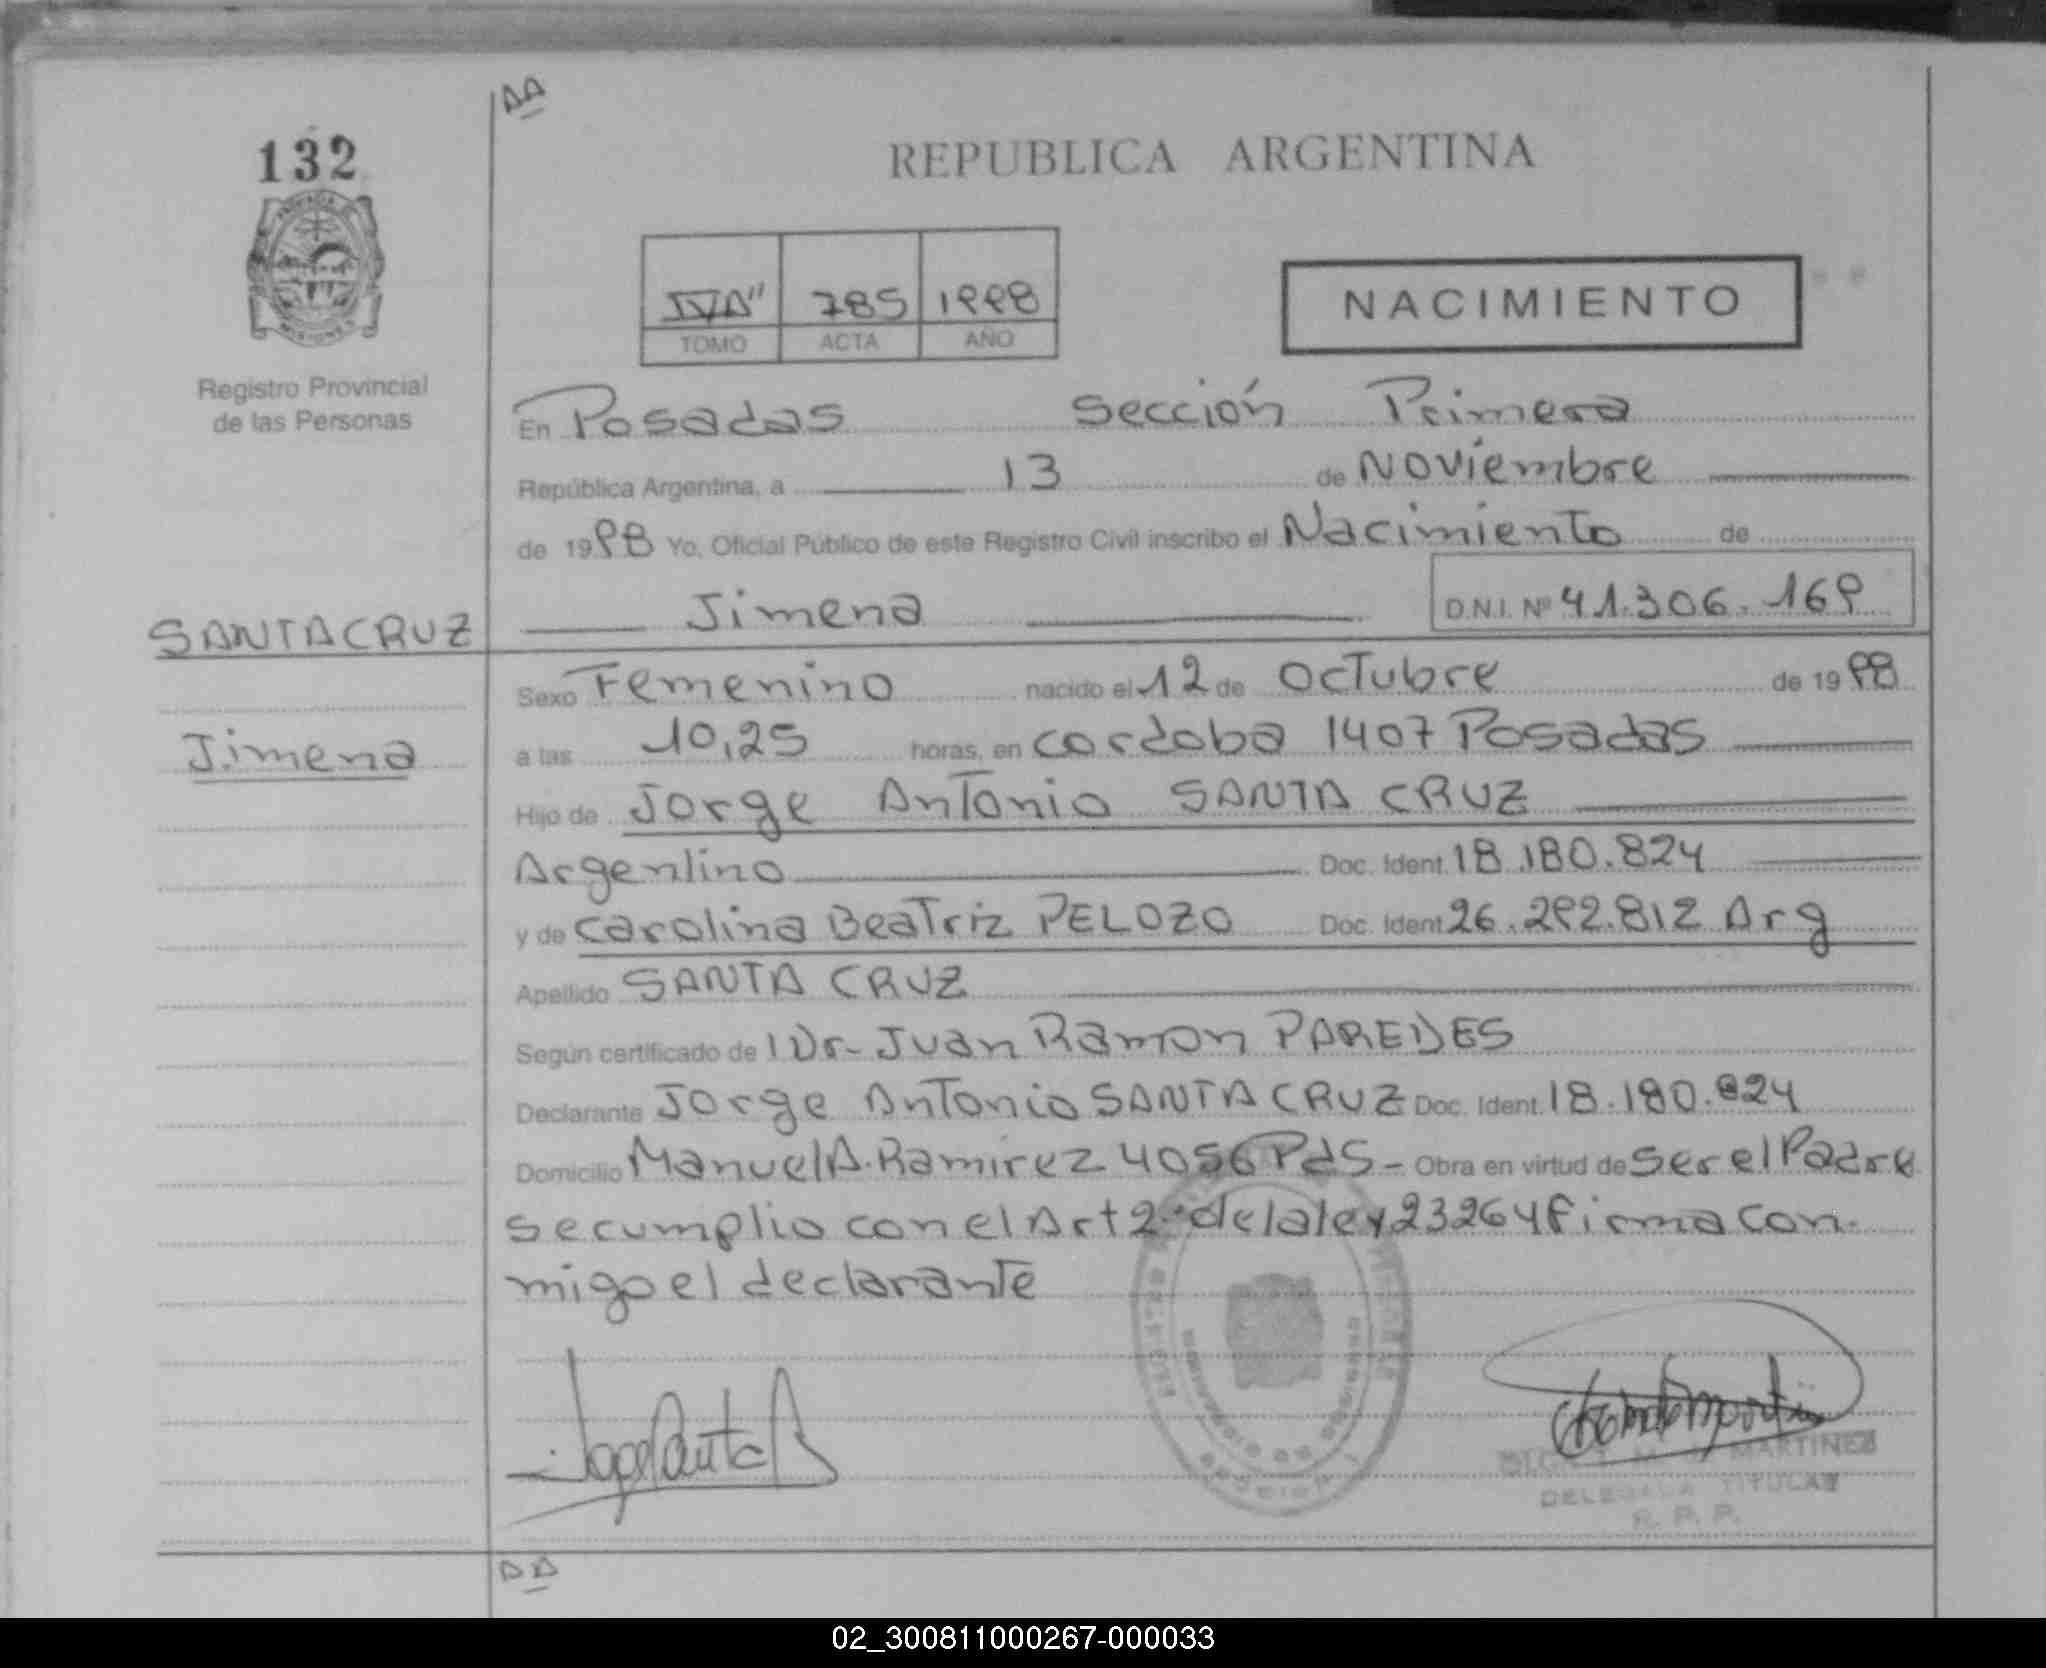 AA
132
REPUBLICA ARGENTINA
IVA" 785 1998
TOMO ACTA AÑO
NACIMIENTO
Registro Provincial
de las Personas
En Posadas Sección Primera
República Argentina, a 13 de Noviembre
de 1998 Yo, Oficial Público de este Registro Civil inscribo el Nacimiento de
Jimena D.N.I. Nº 41.306.169
SANTACRUZ
Sexo Femenino nacido el 12 de Octubre de 1998
Jimena
a las 10,25 horas, en Cordoba 1407 Posadas
Hijo de Jorge Antonio SANTA CRUZ
Argentino Doc. Ident. 18.180.824
y de Carolina Beatriz PELOZO Doc. Ident 26.292.812 Arg
Apellido SANTA CRUZ
Según certificado de l Dr- Juan Ramon PAREDES
Declarante Jorge Antonio SANTA CRUZ Doc. Ident. 18.180.824
Domicilio Manuel A. Ramirez 4056 Pds- Obra en virtud de ser el Padre
se cumplio con el Art 2º de la ley 23264 firma con-
migo el declarante
MARTINEZ
DELEGADA TITULAR
R. P. P.
AA
02_300811000267-000033